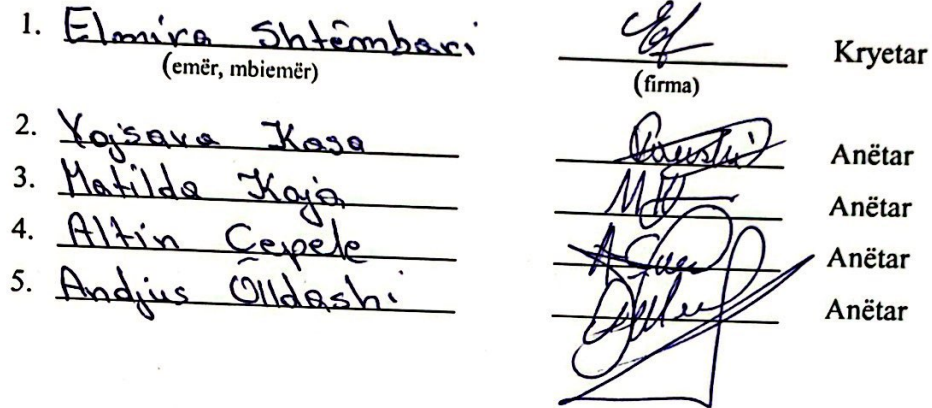 1. Elmira Shtëmbari Kryetar
(emër, mbiemër) (firma)
2. Vojsava Kasa Anëtar
3. Matilda Koja Anëtar
4. Altin Çepele Anëtar
5. Andjus Ölldashi Anëtar